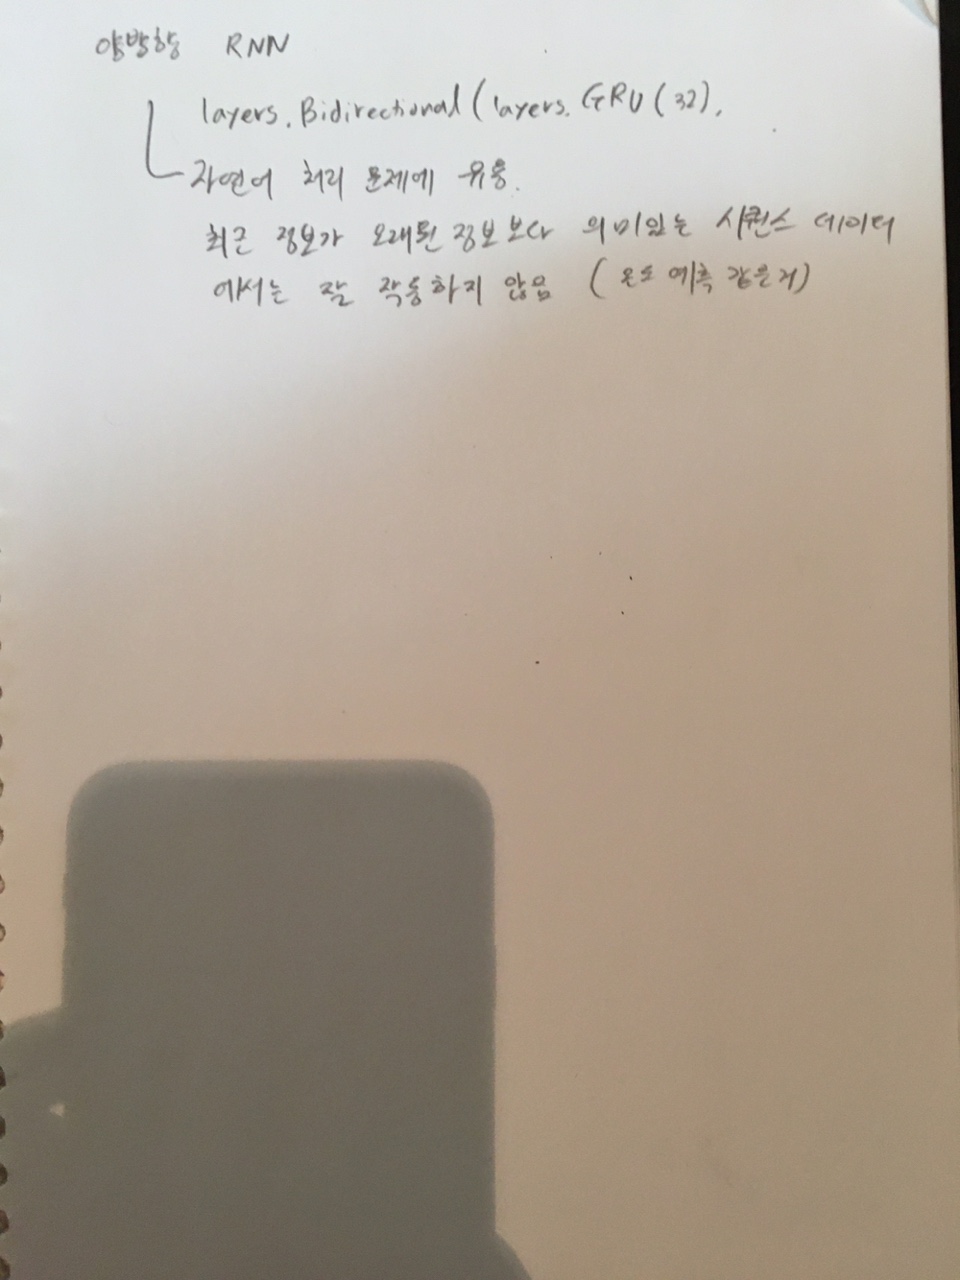 양방향 RNN
layers.Bidirectional(layers.GRU(32),
자연어 처리 문제에 유용.
최근 정보가 오래된 정보보다 의미있는 시퀀스 데이터
에서는 잘 작동하지 않음 (온도 예측 같은거)